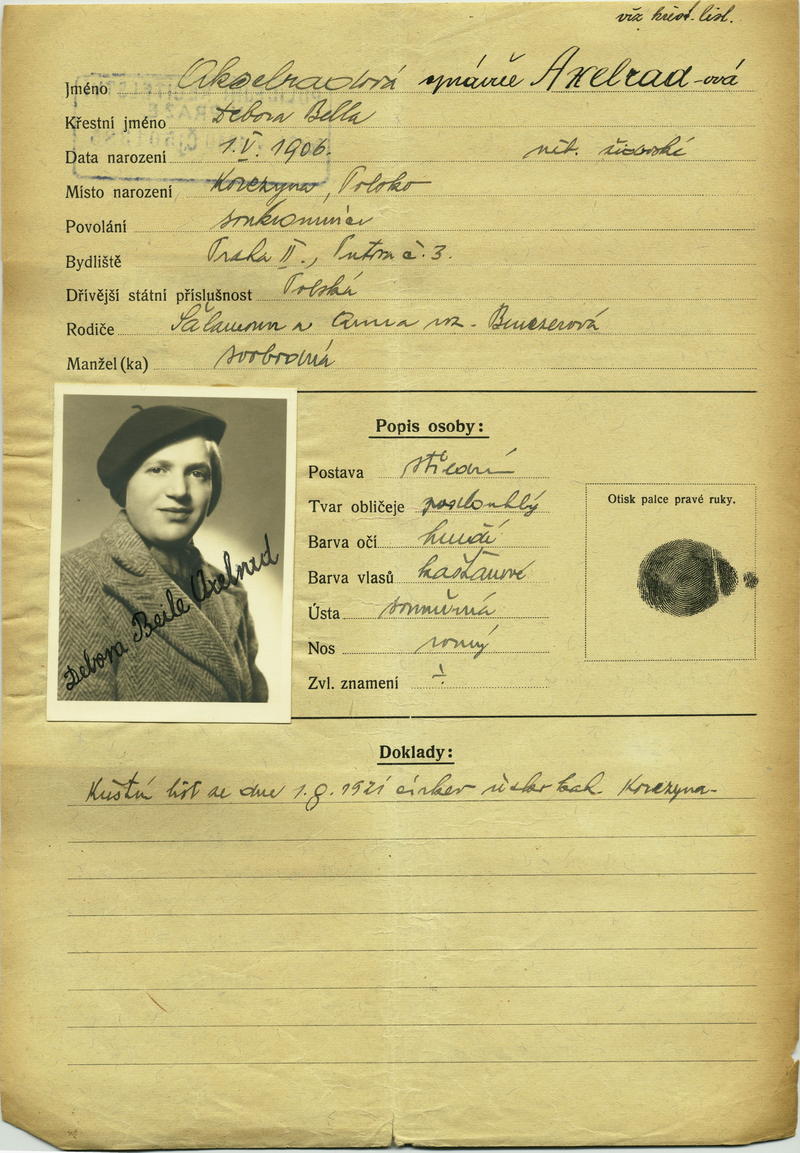 viz křest. list.
Jméno Akselradová správně Axelrad-ová
Křestní jméno Debora Bella
Data narození 1.V. 1906. náb. židovské
Místo narození Korczyna, Polsko
Povolání soukromnice
Bydliště Praha II., č. 3.
Dřívější státní příslušnost Polská
Rodiče Salamoun a Anna roz.
Manžel (ka) svobodná
Popis osoby:
Postava střední
Tvar obličeje podlouhlý
Otisk palce pravé ruky.
Barva očí hnědé
Barva vlasů kaštanové
Ústa souměrná
Nos rovný
Zvl. znamení
Debora Beile Axelrad
Doklady:
Křestní list ze dne 1921 církev Korczyna